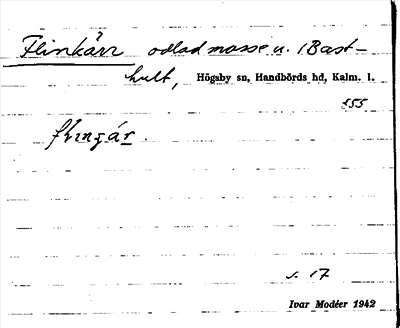 Flinkärr odlad mosse u. Bast-
hult, Högsby sn, Handbörds hd, Kalm. l.
355
s. 17
Ivar Modéer 1942